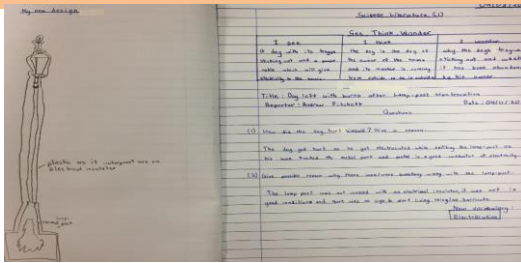 My own design
plastic as it waterproof and an
electrical insulator
lamp
Science Literature (1)
See Think Wonder
I see
A dog with its tongue
sticking out and a power
cable which will give
electricity to the house.
I think
The dog is the dog of
the owner of the house
and its master is
I wonder
why the dogs tongue
sticking out and
it has been abandoned
by his master.
Title: Dog left with burns after lamp-post electrocution
Reporter: Andrew Pitchett
Date:
Questions
(1) How did the dog hurt himself? Give a reason.
The dog got hurt as he got electrocuted while the lamp-post as
his nose touched the metal part and metal is a good conductor of electricity.
(2) Give possible reason why there was/were something wrong with the lamp-post.
The lamp-post was not covered with an electrical insulator, it was not in
good conditions and there was no sign to alert living things/no barricade.
New vocabulary:
Electrocution